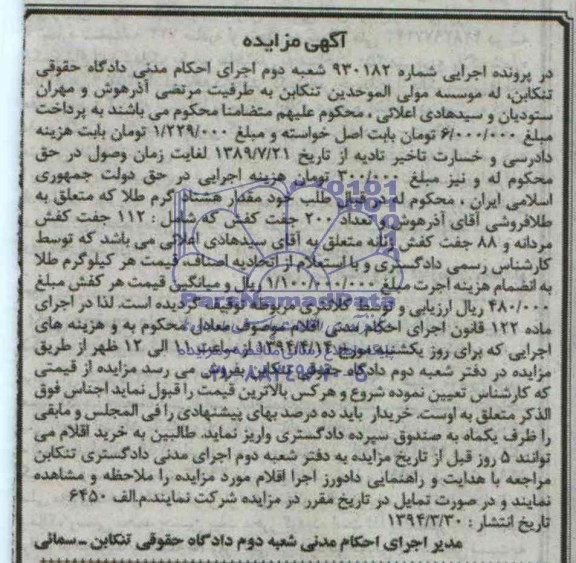 آگهی مزایده
در پرونده اجرایی شماره ۹۳۰۱۸۲ شعبه دوم اجرای احکام مدنی دادگاه حقوقی
تنکابن، له موسسه مولی الموحدین تنکابن به طرفیت مرتضی آذرهوش و مهران
ستودیان و سیدهادی اعلائی، محکوم علیهم متضامنا محکوم می باشند به پرداخت
مبلغ ۶/۰۰۰/۰۰۰ تومان بابت اصل خواسته و مبلغ ۱/۲۲۹/۰۰۰ تومان بابت هزینه
دادرسی و خسارت تاخیر تادیه از تاریخ ۱۳۸۹/۷/۲۱ لغایت زمان وصول در حق
محکوم له و نیز مبلغ ۳۰۰/۰۰۰ تومان هزینه اجرایی در حق دولت جمهوری
اسلامی ایران، محکوم له در قبال طلب خود مقدار هشتاد گرم طلا که متعلق به
طلافروشی آقای آذرهوش و تعداد ۲۰۰ جفت کفش که شامل: ۱۱۲ جفت کفش
مردانه و ۸۸ جفت کفش زنانه متعلق به آقای سیدهادی اعلائی می باشد که توسط
کارشناس رسمی دادگستری و با استعلام از اتحادیه اصناف، قیمت هر کیلوگرم طلا
به انضمام هزینه اجرت مبلغ ۱/۱۰۰/۰۰۰/۰۰۰ ریال و میانگین قیمت هر کفش مبلغ
۴۸۰/۰۰۰ ریال ارزیابی و توسط کلانتری مربوطه توقیف گردیده است. لذا در اجرای
ماده ۱۲۲ قانون اجرای احکام مدنی اقلام موصوف معادل محکوم به و هزینه های
اجرایی که برای روز یکشنبه مورخ ۱۳۹۴/۴/۱۴ از ساعت ۱۱ الی ۱۲ ظهر از طریق
مزایده در دفتر شعبه دوم دادگاه حقوقی تنکابن بفروش می رسد مزایده از قیمتی
که کارشناس تعیین نموده شروع و هرکس بالاترین قیمت را قبول نماید اجناس فوق
الذکر متعلق به اوست. خریدار باید ده درصد بهای پیشنهادی را فی المجلس و مابقی
را ظرف یکماه به صندوق سپرده دادگستری واریز نماید. طالبین به خرید اقلام می
توانند ۵ روز قبل از تاریخ مزایده به دفتر شعبه دوم اجرای مدنی دادگستری تنکابن
مراجعه با هدایت و راهنمایی دادورز اجرا اقلام مورد مزایده را ملاحظه و مشاهده
نمایند و در صورت تمایل در تاریخ مقرر در مزایده شرکت نمایند.م.الف ۶۴۵۰
تاریخ انتشار: ۱۳۹۴/۳/۳۰
مدیر اجرای احکام مدنی شعبه دوم دادگاه حقوقی تنکابن ـ سمائی
ParsNamadData